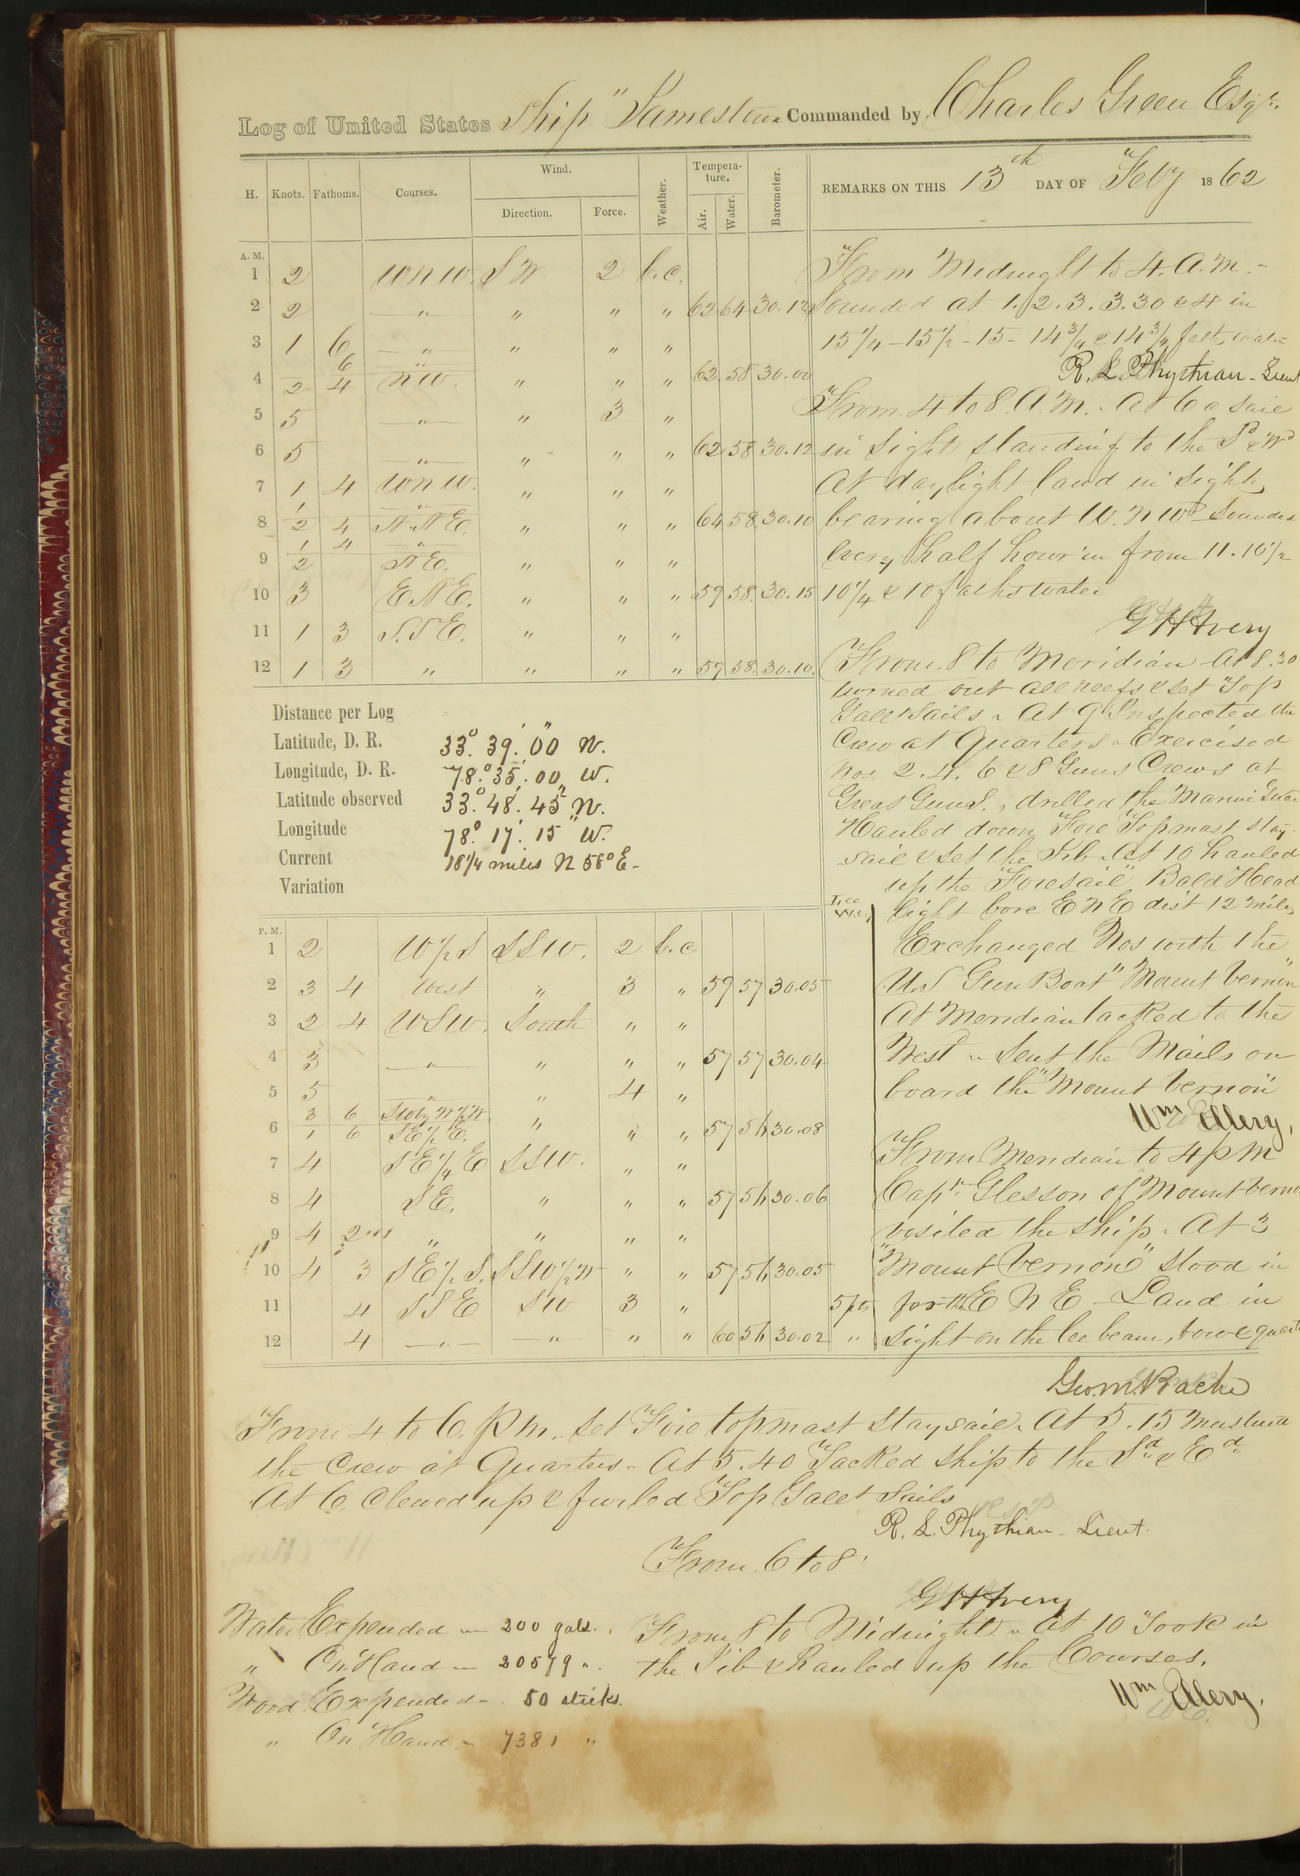 Log of United States Ship "Jamestown Commanded by Charles Green Esqr.
H. Knots. Fathoms. Courses. Wind. Direction. Force. Weather. Temperature. Air. Water. Barometer. REMARKS ON THIS 13th DAY OF Feby 1862
A. M.
1 2 WNW. SW 2 b.c.
2 2 " " " " 62 64 30.12
3 1 6 " " " "
6 "
4 2 4 NW. " " " 62 58 30.00
5 5 " 3 "
6 5 " " " " 62 58 30.12
7 1 4 WNW. " " "
1 "
8 2 4 NNE. " " " 64 58 30.10
1 4 "
9 2 NE. " " "
10 3 ENE. " " " 59 58 30.15
11 1 3 S.SE. " " "
12 1 3 " " " " 59 58 30.10.
From Midnight to 4. A.M. -
Sounded at 1. 2. 3. 3.30 & 4 in
15 1/4 - 15 1/2 - 15 - 14 3/4 & 14 3/4 fath. water
R. L. Phythian - Lieut
From 4 to 8. A.M. At 6 a Sail
in Sight standing to the Sd & Wd
At daylight land in Sight
bearing about W.NWd Sounded
every half hour in from 11. 10 1/2
10 1/4 & 10 faths water
GHAvery
From 8 to Meridian At 8.30
turned out all reefs & set Top
Gallt Sails. At 9 Inspected the
Crew at Quarters. Exercised
Nos. 2. 4. 6 & 8 Guns Crews at
Great Guns., drilled the Marine Guard
Hauled down Fore Topmast Stay-
sail & set the Jib. At 10 hauled
up the "Foresail" Bald Head
light bore ENE dist 12 miles
Exchanged Nos with the
U.S Gun Boat "Mount Vernon"
At Meridian tacked to the
West. Sent the Mails on
board the "Mount Vernon"
Wm Ellery,
From Meridian to 4 PM
Capn Glesson of "Mount Vernon
visited the ship. At 3
"Mount Vernon" stood in
for the E N E - Land in
sight on the lee beam, bow & quarter
Geo. M. Bache
Distance per Log
Latitude, D. R. 33° 39' 00" N.
Longitude, D. R. 78° 35' 00" W.
Latitude observed 33° 48' 45" N.
Longitude 78° 17' 15" W.
Current 18 1/4 miles N 58° E -
Variation
P. M. Lee
1 2 W1/2S SSW. 2 b.c
2 3 4 West " 3 " 59 57 30.05
3 2 4 WSW. South " "
4 3 " " " " 57 57 30.04
5 5 " " 4 "
3 6 SWbyW1/2W
6 1 6 SE1/2E. " " " 57 56 30.08
7 4 SE1/4E SSW. " "
8 4 SE. " " " 57 56 30.06
9 4 " " " "
10 4 3 SE1/2S. SSW1/2W " " 57 56 30.05
11 4 SSE SW 3 " 5 pts
12 4 " " " " 60 56 30.02 "
From 4 to 6. P.M. Set Fore topmast Staysail. At 5.15 Mustered
the Crew at Quarters. At 5.40 Tacked ship to the Sd & Ed
At 6 Clewed up & furled Top Gallt Sails
R. L. Phythian - Lieut.
From 6 to 8.
GHAvery
From 8 to Midnight. At 10 Took in
the Jib & hauled up the Courses.
Wm Ellery.
Water Expended - 200 gals.
" On Hand - 20579 "
Wood Expended - 50 sticks.
" On Hand - 7381 "